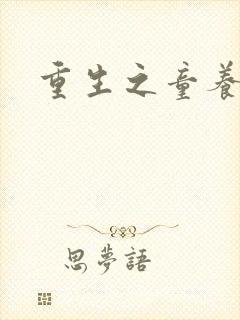 重生之童養
思夢語